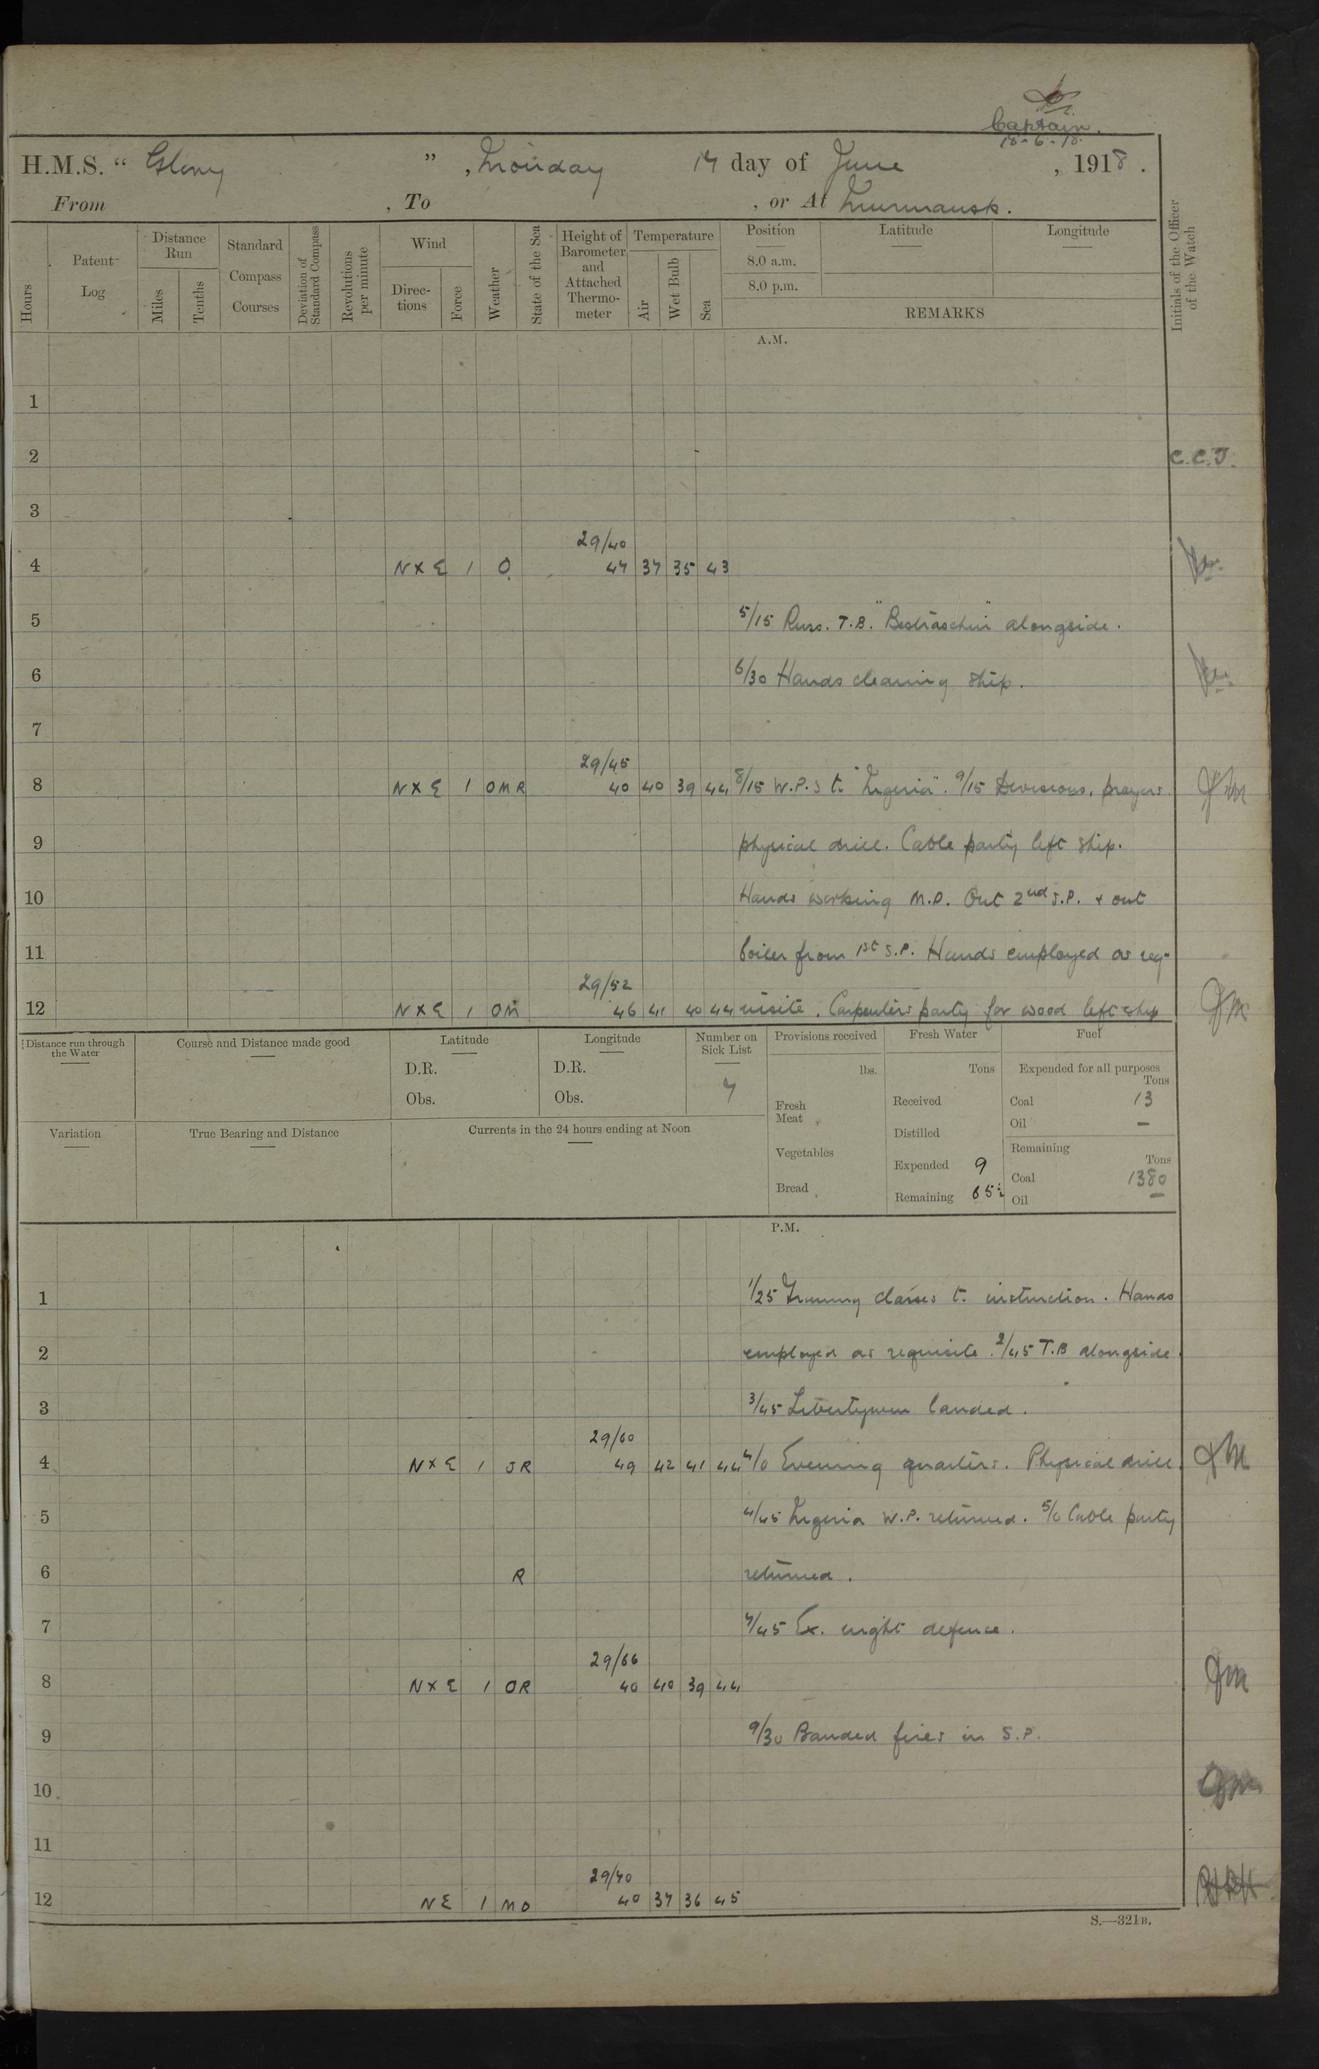 Captain.
18-6-18.
H.M.S. “ Glory ” , Monday 17 day of June , 1918 .
From , To , or At Murmansk.
Hours
Patent Log
Distance Run
Miles
Tenths
Standard Compass Courses
Deviation of Standard Compass
Revolutions per minute
Wind
Directions
Force
Weather
State of the Sea
Height of Barometer and Attached Thermometer
Temperature
Air
Wet Bulb
Sea
Position
8.0 a.m.
8.0 p.m.
Latitude
Longitude
REMARKS
Initials of the Officer of the Watch
A.M.
1
2 C.C.J.
3
29/40
4 N X E 1 O 47 37 35 43
5 5/15 Russ. T.B. alongside.
6 6/30 Hands cleaning ship.
7
29/45
8 N X E 1 OMR 40 40 39 44 8/15 W.P.s to "Nigeria". 9/15 Divisions, prayers JM
9 physical drill. Cable party left ship.
10 Hands working M.D. Out 2nd S.P. + out
11 boiler from 1st S.P. Hands employed as req-
29/52
12 N X E 1 OM 46 41 40 44 uisite. Carpenters party for wood left ship JM
Distance run through the Water
Course and Distance made good
Latitude
D.R.
Obs.
Longitude
D.R.
Obs.
Number on Sick List
7
Provisions received
lbs.
Fresh Meat
Vegetables
Bread
Fresh Water
Tons
Received
Distilled
Expended 9
Remaining
Fuel
Expended for all purposes
Tons
Coal 13
Oil —
Remaining
Tons
Coal 1380
Oil —
Variation
True Bearing and Distance
Currents in the 24 hours ending at Noon
P.M.
1 1/25 Training classes to instruction. Hands
2 employed as requisite. 2/45 T.B alongside.
3 3/45 Libertymen landed.
29/60
4 N X E 1 OR 49 42 41 44 4/0 Evening quarters. Physical drill. JM
5 4/45 Nigeria W.P. returned. 5/0 Cable party
6 R returned.
7 7/45 Ex. night defence.
29/66
8 N X E 1 OR 40 40 39 44 JM
9 9/30 Banded fires in S.P.
10 JM
11
29/70
12 NE 1 MO 40 37 36 45
S.—321B.